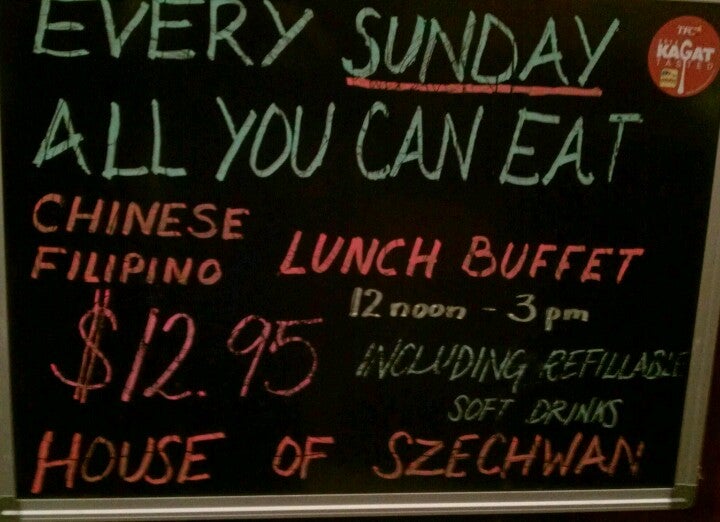 EVERY SUNDAY
ALL YOU CAN EAT
CHINESE
FILIPINO
LUNCH BUFFET
12 noon - 3 pm
$12.95
INCLUDING REFILLABLE
SOFT DRINKS
HOUSE OF SZECHWAN
TFC
KAGAT
TASTED